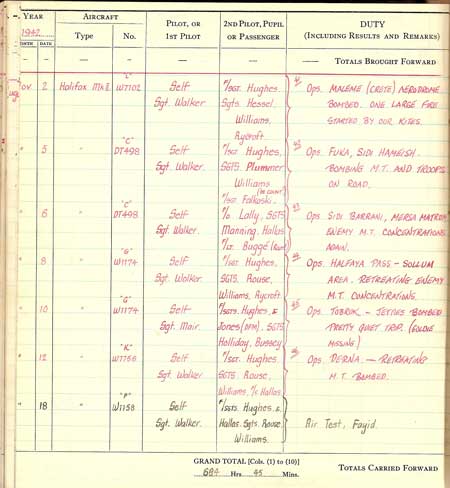 YEAR AIRCRAFT PILOT, OR 2ND PILOT, PUPIL DUTY
1942 Type No. 1ST PILOT OR PASSENGER (INCLUDING RESULTS AND REMARKS)
MONTH DATE
— — — — — — — TOTALS BROUGHT FORWARD
Nov 2 Halifax Mk II "L" W7702 Self F/Sgt. Hughes. 41 Ops. MALEME (CRETE) AERODROME
Sgt. Walker Sgts. Hessel. BOMBED. ONE LARGE FIRE
Williams. STARTED BY OUR KITES.
Rycroft
" 5 " "C" DT498 Self F/Sgt Hughes. 42 Ops. FUKA, SIDI HANEISH.
Sgt. Walker. SGTS. Plummer BOMBING M.T. AND TROOPS
Williams ON ROAD.
F/Sgt. Falkoski.
" 6 " "C" DT498 Self F/O. Lally, SGTS 43 Ops. SIDI BARRANI, MERSA MATRUH
Sgt. Walker. Manning, Hallas ENEMY M.T. CONCENTRATIONS
F/Lt. Buggé AGAIN.
" 8 " "G" W1174 Self F/Sgt. Hughes, 44 Ops. HALFAYA PASS - SOLLUM
Sgt. Walker SGTS. Rouse, AREA. RETREATING ENEMY
Williams, Rycroft M.T. CONCENTRATIONS.
" 10 " "G" W1174 Self F/Sgts. Hughes, & 45 Ops. TOBRUK - JETTIES BOMBED
Sgt. Moir. Jones (DFM), SGTS PRETTY QUIET TRIP. (GOLDIE
Holliday, Bussey MISSING)
" 12 " "K" W7756 Self F/Sgt. Hughes 46 Ops. DERNA. — RETREATING
Sgt. Walker SGTS. Rouse, M.T. BOMBED.
Williams, Hallas
" 18 " "P" W1158 Self F/Sgts. Hughes &
Sgt. Walker. Hallas. Sgts. Rouse, Air Test, Fayid.
Williams.
GRAND TOTAL [Cols. (1) to (10)]
684 Hrs. 45 Mins. TOTALS CARRIED FORWARD